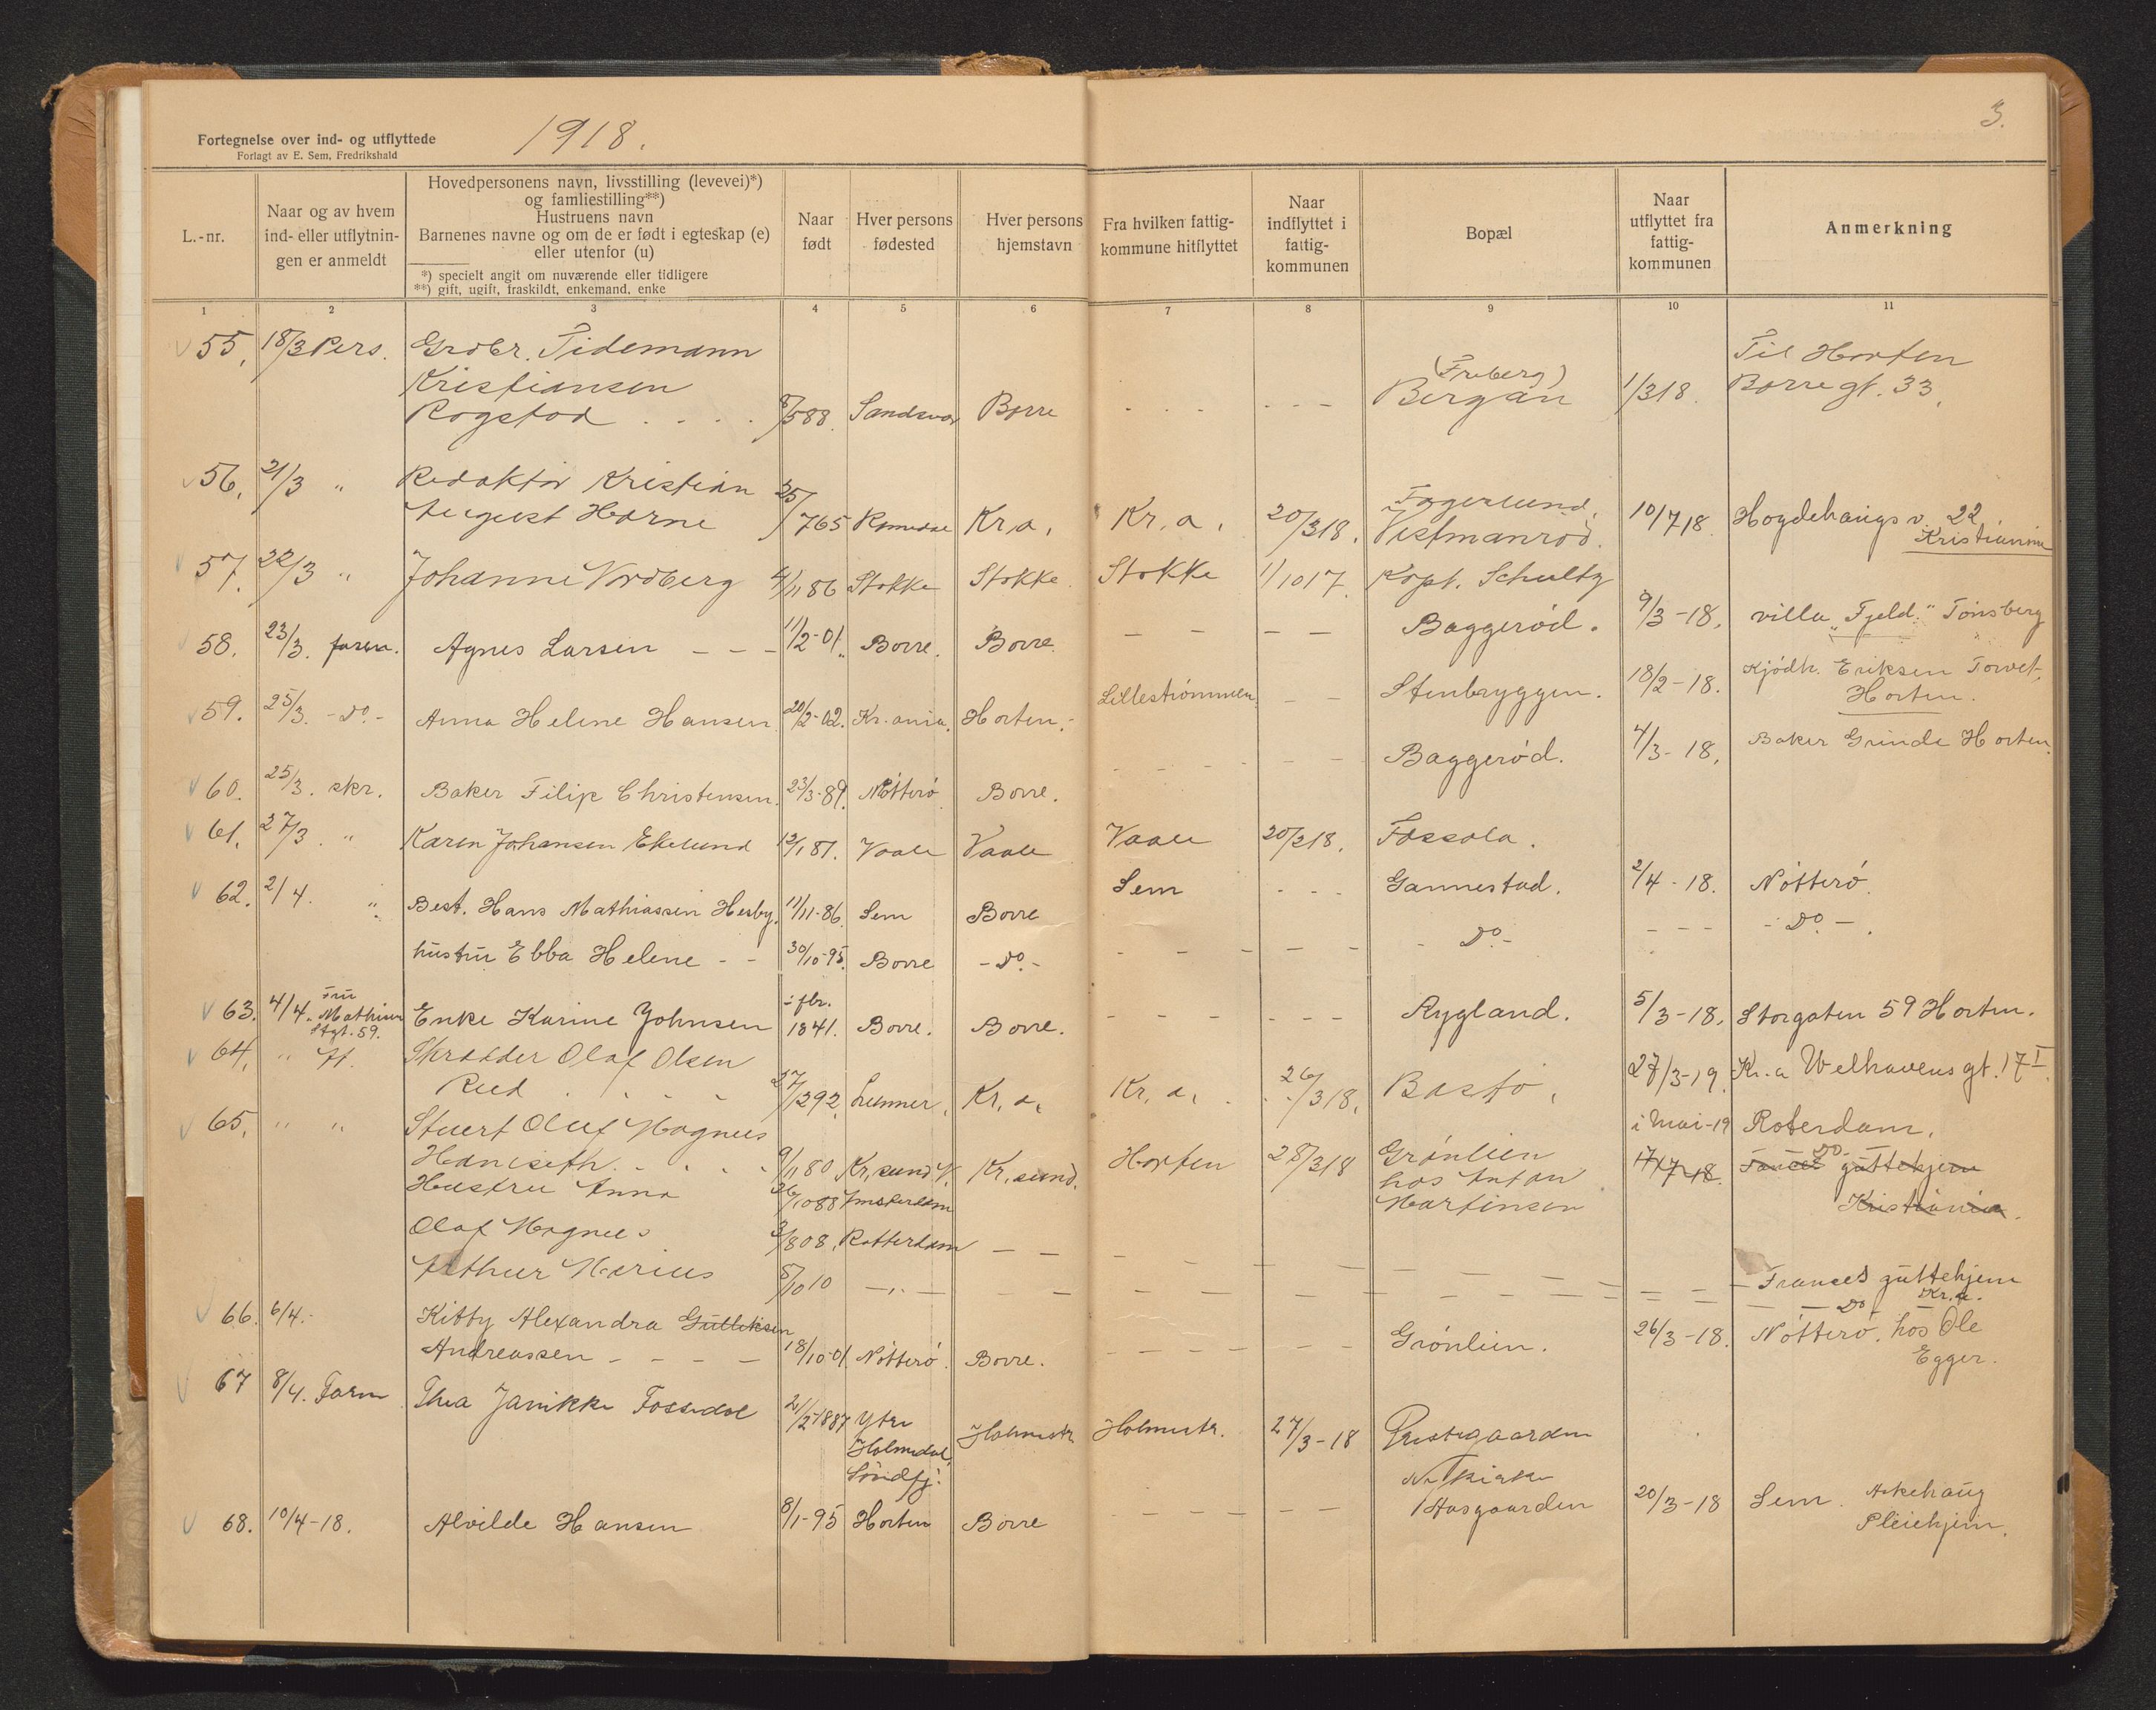 3.
Fortegnelse over ind- og utflyttede 1918.
Forlagt av E. Sem, Fredrikshald
L.-nr.
Naar og av hvem ind- eller utflytnin-gen er anmeldt
Hovedpersonens navn, livsstilling (levevei)*)
og famliestilling**)
Hustruens navn
Barnenes navne og om de er født i egteskap (e)
eller utenfor (u)
*) specielt angit om nuværende eller tidligere
**) gift, ugift, fraskildt, enkemand, enke
Naar født
Hver persons fødested
Hver persons hjemstavn
Fra hvilken fattig-kommune hitflyttet
Naar indflyttet i fattig-kommunen
Bopæl
Naar utflyttet fra fattig-kommunen
Anmerkning
1 2 3 4 5 6 7 8 9 10 11
55. 18/3 Pers. Grobr. Tidemann Til Horten
Kristiansen (Freberg)
Rogstad . . . . 8/588. Sandsvær Borre . . . - - - Bergan 1/318. Borregt. 33.
56. 21/3 " Redaktør Kristian 25/ Fagerlund,
August Horne 765 Romedal Kr,a. Kr,a. 20/318. Vestmanrød. 10/718. Hogdehaugs v. 22
Kristiania
57. 22/3 " Johanne Nordberg 4/1186 Stokke Stokke. Stokke 1/1017. Kapt. Schultz
Baggerød. 9/3-18. villa "Fjeld" Tønsberg
58. 23/3. farera. Agnes Larsen - - - 11/2-01. Borre. Borre. - - - -
Stenbryggen. 18/2-18. Kjødh. Eriksen Torvet,
Horten.
59. 25/3. -do.- Anna Helene Hansen. 20/2-02. Kr.ania. Horten.- Lillestrømmen. - -
Baggerød. 4/3-18. Baker Grinde Horten.
60. 25/3. skr. Baker Filip Christensen. 23/3-89. Nøtterø Borre. - - - - -
61. 27/3. " Karen Johansen Ekelund 12/181. Vaale Vaale Vaale 20/218. Fossola.
62. 2/4. " Best. Hans Mathiassen Hesby. 11/11-86. Sem Borre Sem - - - Gannestad. 2/4-18. Nøtterø.
hustru Ebba Helene - - 30/10-95. Borre -do.- - - - - - - do.- - - - - do. - .
63. 4/4. Fru Mathisen Stgt. 59. Enke Karine Johnsen i fbr. 1841. Borre. Borre. - - - - - - Rygland. 5/3-18. Storgaten 59 Horten.
64. " H. Skrædder Olaf Olsen
Rud . . . . 27/1292. Lunner. Kr,a. Kr,a. 26/318. Bastø. 27/3-19. Kr.a Welhavens gt. 17 I
65. " " Stuert Oluf Magnus i Mai-19 Roterdam.
Haneseth . . . . 9/1180 Kr,sund N. Kr,sund. Horten 28/318 Grønlien 17/7-18. Frances guttehjem
Hustru Anna 26/1088 Amsterdam hos Anton Martinsen Kristiania.
Olaf Magnus 3/808. Rotterdam - - -
Arthur Marius 5/1010 - " - - - Frances guttehjem
Kr.a.
66. 6/4.- Kitty Alexandra Gulliksen do -
Andreassen - - - - 18/10-01. Nøtterø. Borre. - - - - - - Grønlien. 26/3-18. Nøtterø. hos Ole
Egger.
67 8/4. Farm Thea Janikke Fossedal 21/2-1887 Ytre Holmedal, Søndfj. Holmestr. Holmestr. 27/3-18 Prestegaarden
Nykirke
68. 10/4-18. Alvilde Hansen 8/1-95 Horten Borre - - - - - - Aasgaarden 20/3-18 Sem. Askehaug
Pleiehjem.